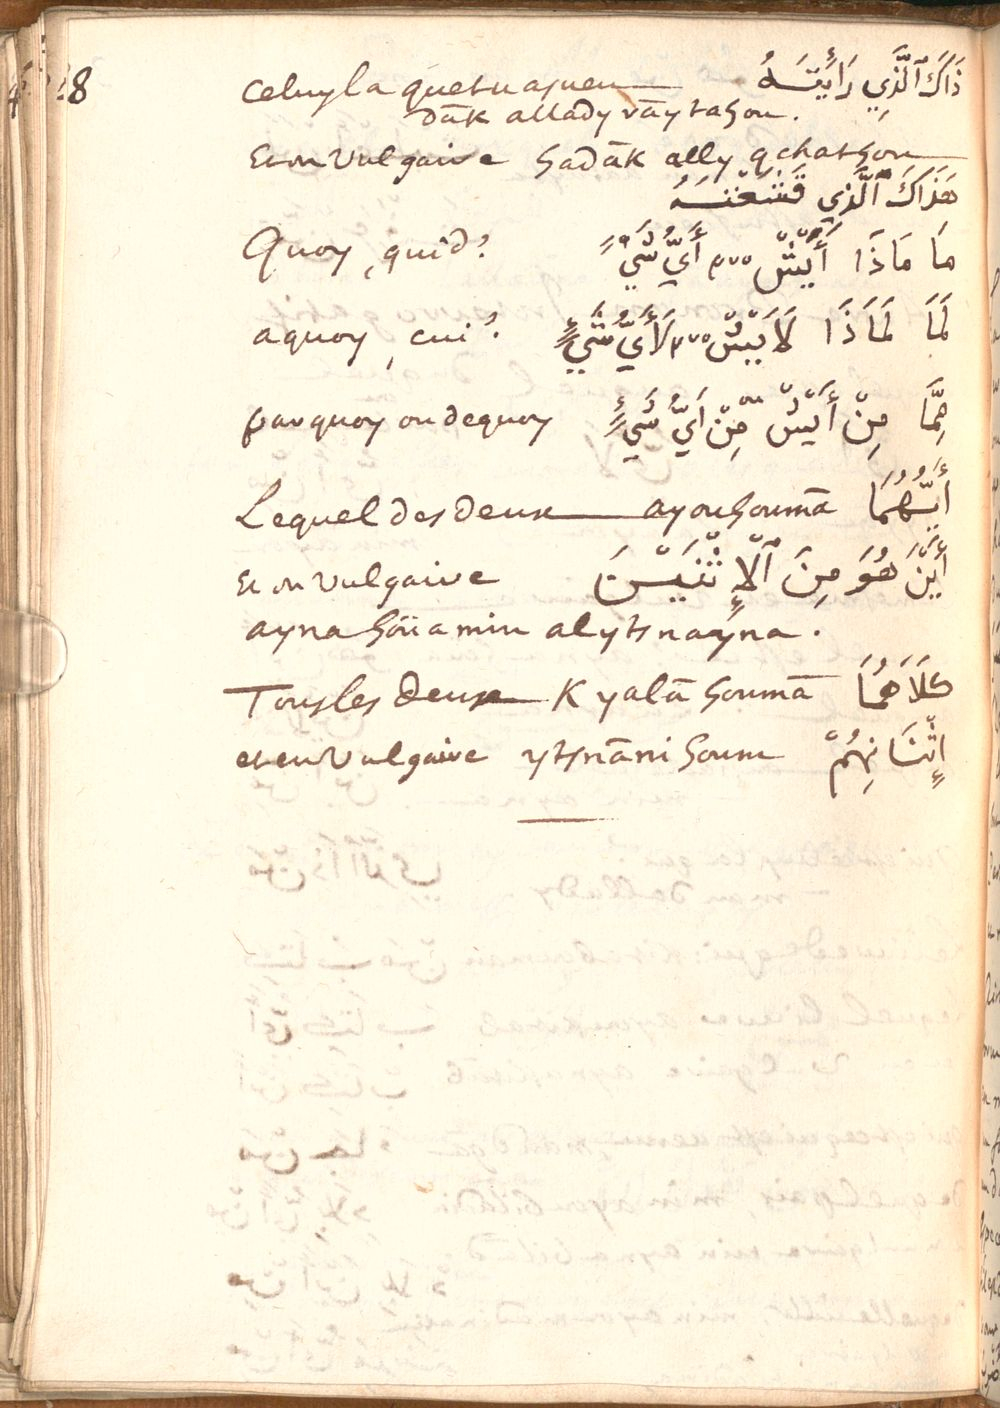 8
celuy la que tu as ueu ذَاكَ ٱلَّذِي رَأَيْتَهُ
dāk alladỳ rāytahou.
Et en Vulgaire hadāk ally qchathou
هَذَاكَ ٱلَّذِي قَشَعْتَهُ
Quoy, quid? مَا مَاذَا أَيْشْ أَيُّ شَيْءٍ
a quoy, cui? لِمَا لِمَاذَا لَأَيْشْ لَأَيُّ شَيْءٍ
par quoy ou de quoy مِمَّا مِنْ أَيْشْ مِنْ أَيُّ شَيْءٍ
Lequel des deux ayouhoumā أَيُّهُمَا
Et en vulgaire أَيْنَ هُوَ مِنَ ٱلْإِثْنَيْنَ
ayna hoüa min alythnayna.
Tous les deux Kyalā houmā كِلَاهُمَا
et en Vulgaire ythnāni houm إِثْنَانِهُمْ